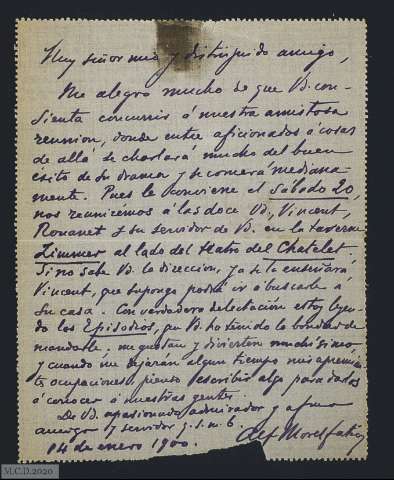 Muy señor mio y distinguido amigo,
Me alegro mucho de que Vd. con-
sienta concurrir á nuestra amistosa
reunion, donde entre aficionados á cosas
de allá se charlará mucho del buen
éxito de su drama y se comerá mediana-
mente. Pues le conviene el sábado 20,
nos reuniremos á las doce Vd., Vincent,
Rouanet y su servidor de Vd. en la taverne
Zimmer al lado del teatro del Chatelet.
Si no sabe Vd. la direccion, ya se la enseñará
Vincent, que supongo podrá ir á buscarle á
su casa. Con verdadera delectación estoy leyen-
do los Episodios, que Vd. ha tenido la bondad de
mandarme, me gustan y divierten muchisimo,
y cuando me dejarán algun tiempo mis apremian-
tes ocupaciones, pienso escribir algo para darlos
á conocer á nuestras gentes.
De Vd. apasionado admirador y afmo
amigo y servidor q. s. m. b.
14 de enero 1900. Alf Morel-Fatio
M.C.D.2020